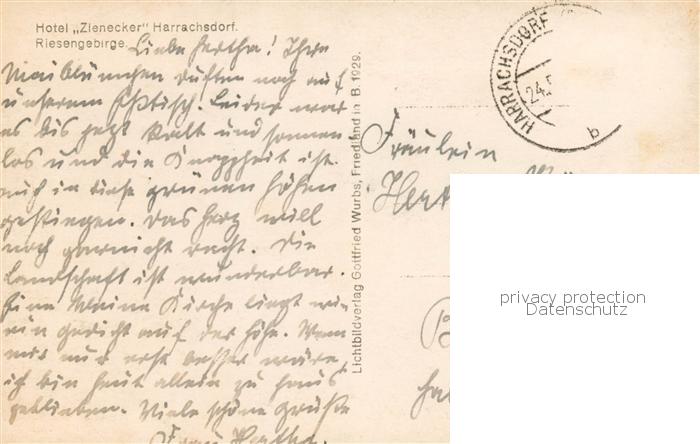 Hotel „Zienecker" Harrachsdorf.
Riesengebirge.
Liebe Hertha! Ihre
Maiblümchen duften noch auf
unserem Eßtisch. Leider war
es bis jetzt kalt und sonnen
los und die Knappheit ist
auch in diese grünen Höhen
gestiegen. Das Herz will
noch garnicht recht. Die
Landschaft ist wunderbar.
Eine kleine Kirche liegt wie
ein Gedicht auf der Höhe. Wenn
mir nur erst besser wäre,
ich bin heut allein zu Haus
geblieben. Viele schöne Grüße
Frau Hertha.
Lichtbildverlag Gottfried Wurbs, Friedland in B. 1929.
HARRACHSDORF
24.
b
Fräulein
privacy protection
Datenschutz